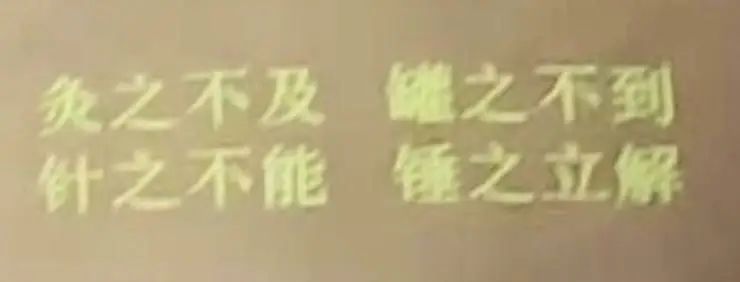 灸之不及 罐之不到
针之不能 锤之立解